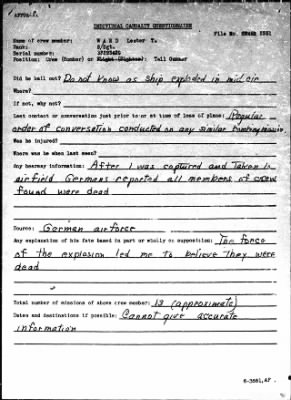 INDIVIDUAL CASUALTY QUESTIONNAIRE
Name of crew member: WARD Lester T.
Rank: S/Sgt.
Serial number:
Position: Crew (Bomber) or Flight (Fighter): Tail Gunner
Did he bail out? Do not know as ship exploded in mid air
Where?
If not, why not?
Last contact or conversation just prior to or at time of loss of plane: Regular
order of conversation conducted on any similar bombing mission
Was he injured?
Where was he when last seen?
Any hearsay information: After I was captured and Taken to
airfield Germans reported all members of crew
found were dead
Source: German airforce
Any explanation of his fate based in part or wholly on supposition: The force
of the explosion led me to believe they were
dead
Total number of missions of above crew member: 13 (approximate)
Dates and destinations if possible: Cannot give accurate
information
6-3861,AF